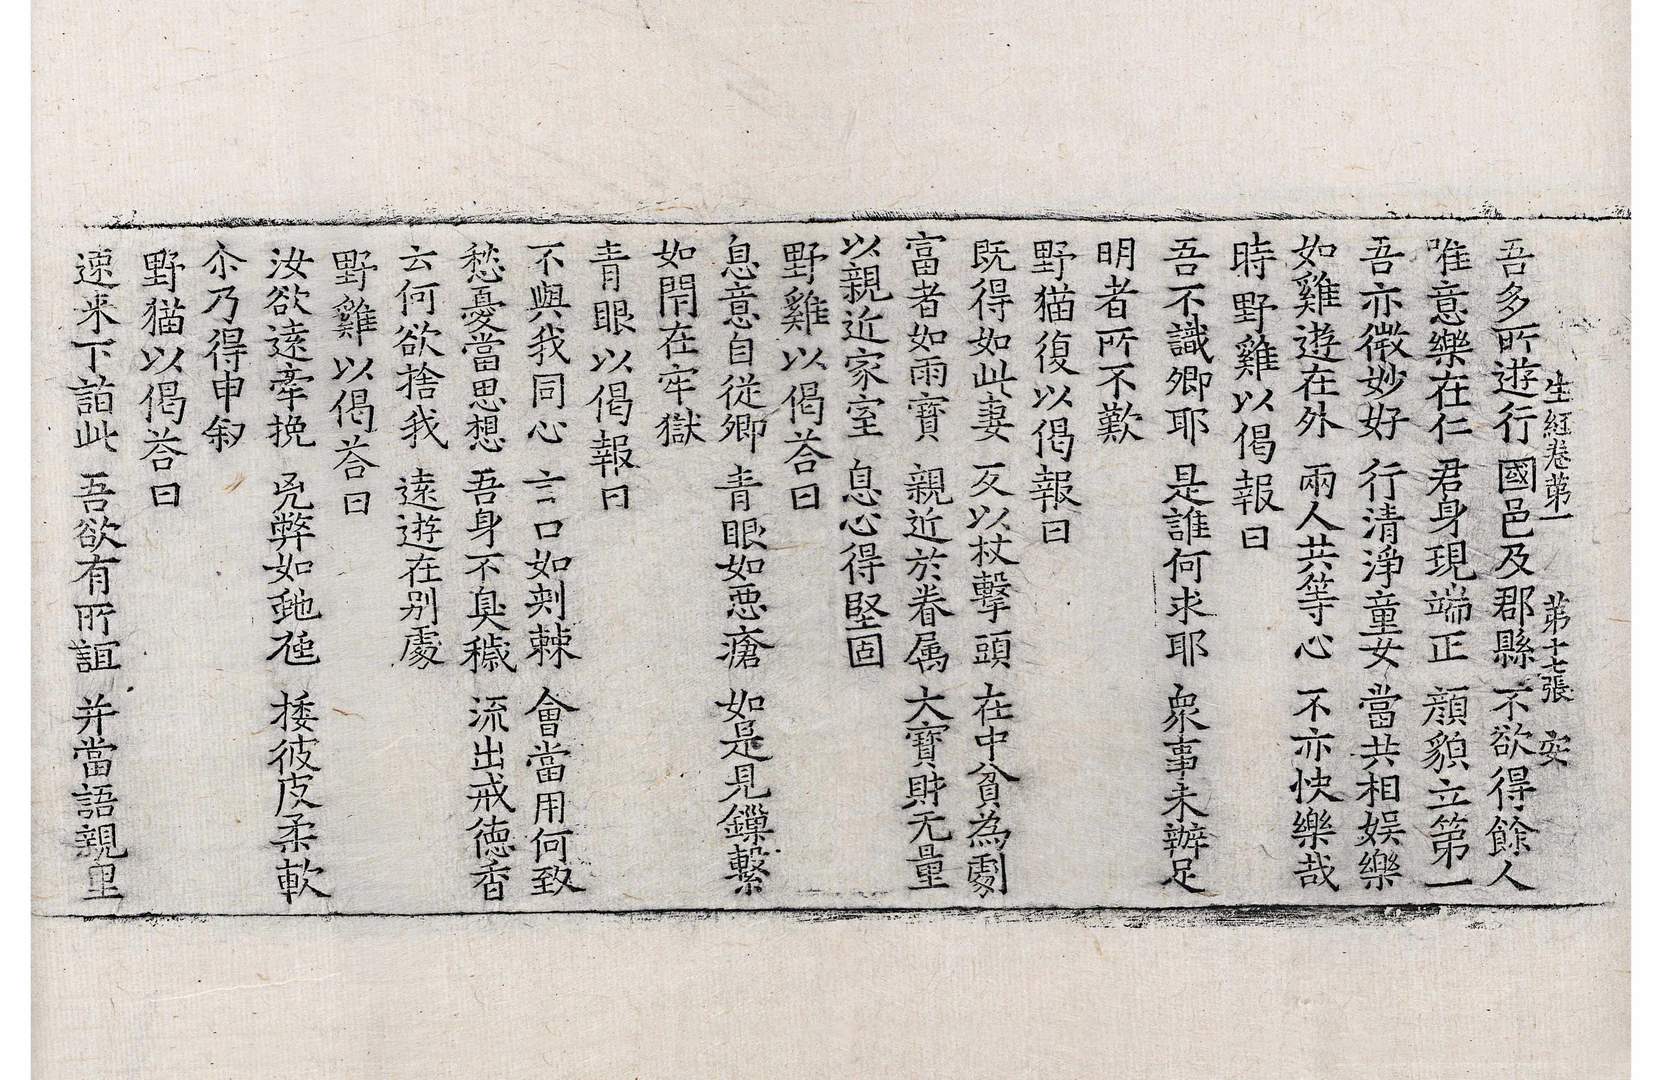 生經卷第一 第十七張 安
吾多所遊行 國邑及郡縣 不欲得餘人
唯意樂在仁 君身現端正 顔貌立第一
吾亦微妙好 行清淨童女 當共相娛樂
如雞遊在外 兩人共等心 不亦快樂哉
時野雞以偈報曰
吾不識卿耶 是誰何求耶 衆事未辦足
明者所不歎
野猫復以偈報曰
既得如此妻 反以杖擊頭 在中貧為劇
富者如雨寶 親近於眷属 大寶財无量
以親近家室 息心得堅固
野雞以偈荅曰
息意自從卿 青眼如惡瘡 如是見鏁繫
如閇在牢獄
青眼以偈報曰
不與我同心 言口如刺棘 會當用何致
愁憂當思想 吾身不臭穢 流出戒徳香
云何欲捨我 遠遊在别處
野雞以偈荅曰
汝欲遠牽挽 兇弊如虵虺 捼彼皮柔軟
尒乃得申叙
野猫以偈荅曰
速来下詣此 吾欲有所誼 并當語親里